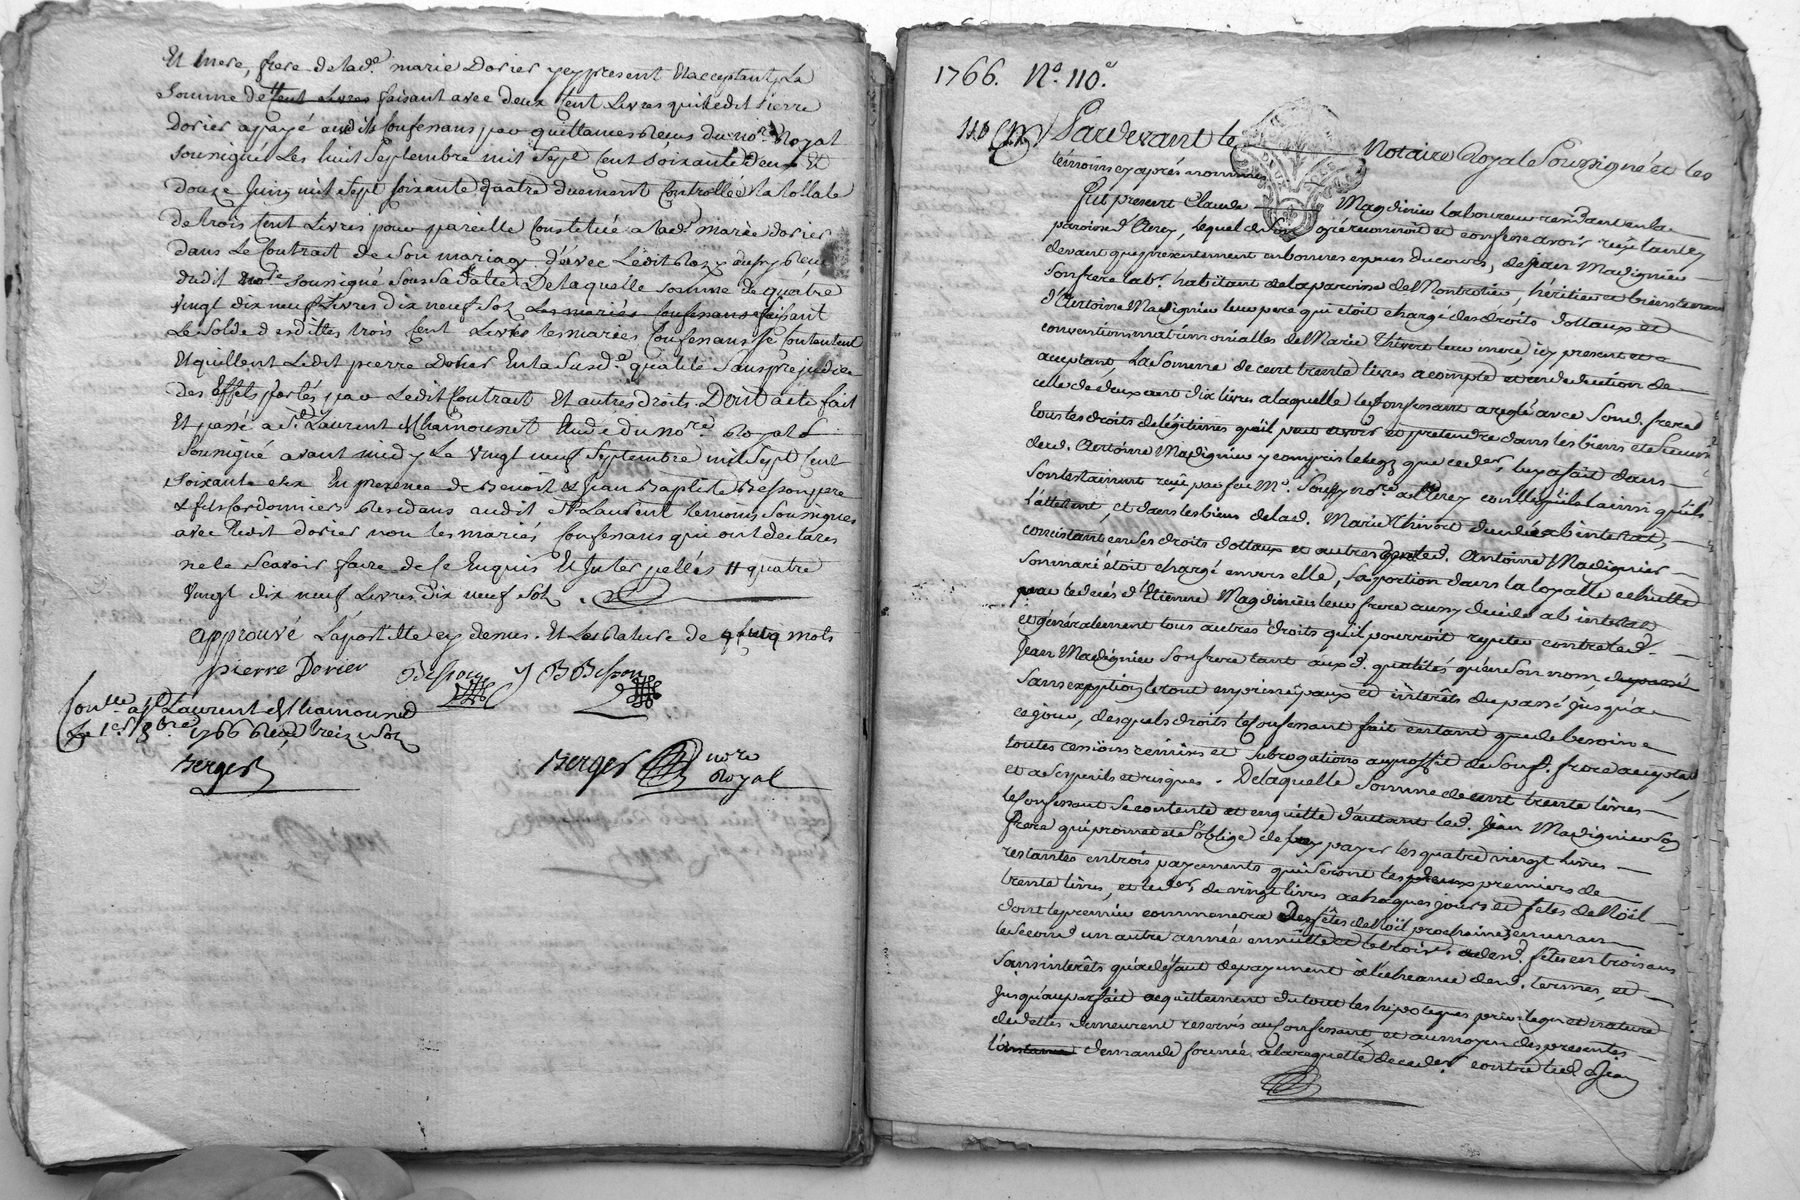 Et mere, frere de lade. marie Dorier y cy present Et acceptant, La
Somme de Cent Livres faisant avec deux Cent Livres quil ledit Pierre
Dorier a payé auxdits Confessans par quittances Receus du nore. Royal
soussigné Les huit Septembre mil Sept Cent Soixante deux Et
douze Juin mil sept soixante quatre duement Controllée la totale
de trois Cent Livres pour pareille Constituée a lade. marie dorier
dans Le Contrat de Son mariage avec Ledit aussy Receu
dudit nore. soussigné sous sa datte De laquelle somme de quatre
vingt dix neuf Livres dix neuf Sols Les mariés Confessans faisant
Le Solde desdittes trois Cent Livres les mariés Confessans se Contentent
Et quittent Ledit pierre Dorier En la Susde. qualité Sans prejudice
Des Effets portés par Ledit Contrat Et autres droits. Dont acte fait
Et passé a St. Laurent de Chamousset Etude du nore. Royal
Soussigné avant midy Le vingt neuf Septembre mil Sept Cent
soixante six En presence de Benoit & Jean Baptiste Besson pere
& fils Cordonniers Residans audit St Laurent temoins Soussignes
avec Ledit dorier non les mariés Confessans qui ont declarés
ne le Scavoir faire de ce Enquis Et Interpellés # quatre
vingt dix neuf Livres dix neuf Sols .
approuvé L'apostille cy dessus. Et La Rature de mots
pierre Dorier Besson J B Besson
Conlle. a St Laurent de Chamousset
Le 1er. 8bre. 1766 Receu treize Sols
Berger
Berger nore
Royal
1766. No. 110e.
110 Pardevant le Notaire Royal Soussigné et les
témoins cy après nommés
Fut present Claude Magdinier laboureur residant en la
paroisse d' , lequel de gré reconnoit et confesse avoir reçu tant cy
devant que presentement en bonnes especes du cours, de Jean Magdinier
son frere labr. habitant de la paroisse de Montrotier, héritier et bientenant
d'Antoine Magdinier leur pere qui étoit chargé des droits dottaux et
conventions matrimonialles de Marie Thivert leur mere, icy present et
acceptant, La Somme de cent trente livres acompte et en deduction de
celle de deux cent dix livres a laquelle le Confessant a reglé avec Sond. frere
tous les droits de légitimes qu'il peut avoir et pretendre dans les biens et Succon.
dud. Antoine Magdinier y compris le legs que ce der. luy a fait dans
son testament reçu par feu Me. nore. a controllé ainsi qu'ils
l'attestent, et dans les biens de lad. Marie Thivert decedée ab intestat,
consistant en ses droits dottaux et autres dont led. Antoine Magdinier
son mari étoit chargé envers elle, sa portion dans la loyalle echutte
par le décés d'Etienne Magdinier leur frere aussy decedé ab intestat
et généralement tous autres droits qu'il pourroit repeter contre led.
Jean Magdinier son frere tant auxd. qualités qu'en son nom
sans exception le tout en principaux et intérêts du passé jusqu'a
ce jour, desquels droits le Confessant fait en tant que de besoin
toutes cessions remises et subrogations au proffit de Sond. frere acceptant
et a ses perils et risques. De laquelle Somme de cent trente livres
le Confessant se contente et en quitte d'autant led. Jean Magdinier son
frere qui promet et s'oblige de luy payer les quatre vingt livres
restantes en trois payements qui seront les deux premiers de
trente livres, et le der. de vingt livres a chaques jours et fetes de Noël
dont le premier commencera Des fêtes de Noël prochaines en un an
le second un autre année ensuitte et le trois. auxd. fêtes en trois ans
sans interêts qu'a défaut de payement a l'echeance desd. termes, et
jusqu'au parfait acquittement du tout les hipoteques privilege et nature
de dettes demeurent reservés au Confessant et au moyen des presentes
l'instance demande formée a la requette de ce der. contre led. Jean